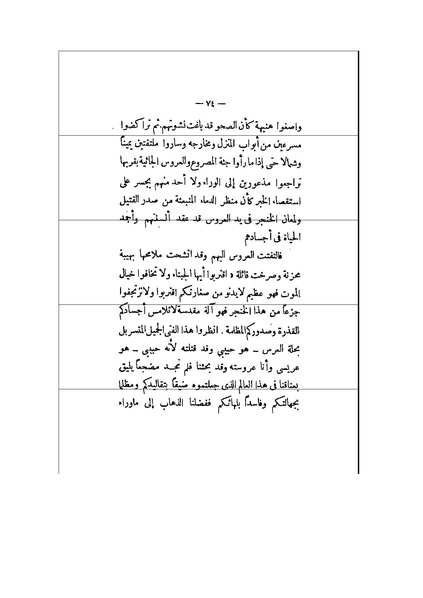 — ٧٤ —
واصغوا هنيهة كأن الصحو قد باغت نشوتهم. ثم تراكضوا
مسرعين من أبواب المنزل ومخارجه وساروا ملتفتين يميناً
وشمالا حتى إذا ما رأوا جثة المصروع والعروس الجاثية بقربها
تراجعوا مذعورين إلى الوراء ولا أحد منهم يجسر على
استقصاء الخبر كأن منظر الدماء المنبعثة من صدر القتيل
ولمعان الخنجر فى يد العروس قد عقد ألسنتهم وأجمد
الحياة فى أجسادهم
فالتفتت العروس اليهم وقد اتشحت ملامحها بهيبة
محزنة وصرخت قائلة « اقتربوا أيها الجبناء ولا تخافوا خيال
الموت فهو عظيم لا يدنو من صغارتكم اقتربوا ولا ترتجفوا
جزعاً من هذا الخنجر فهو آلة مقدسة لا تلامس أجسادكم
القذرة وصدوركم المظلمة . انظروا هذا الفتى الجميل المتسربل
بحلة العرس — هو حبيبي وقد قتلته لأنه حبيبي — هو
عريسى وأنا عروسته وقد بحثنا فلم نجد مضجعاً يليق
بعناقنا فى هذا العالم الذى جعلتموه ضيقاً بتقاليدكم ومظلما
بجهالتكم وفاسداً بلهاثكم ففضلنا الذهاب إلى ماوراء